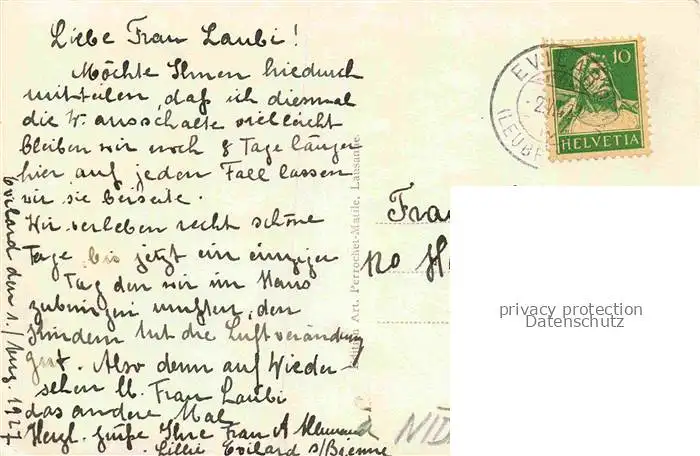 Liebe Frau Laubi!
Möchte Ihnen hiedurch
mitteilen, daß ich diesmal
die W. ausschalte vielleicht
bleiben wir noch 8 Tage länger
hier auf jeden Fall lassen
wir sie beiseite.
Wir verleben recht schöne
Tage bis jetzt ein einziger
Tag den wir im Haus
zubringen mußten, den
Kindern tut die Luftveränderung
gut. Also denn auf Wieder-
sehen lb. Frau Laubi
das andere Mal
Herzl. Grüße Ihre Frau A
Evilard s/Bienne
Evilard den 1. Aug. 1927
Edition Art. Perrochet-Matile, Lausanne.
10
HELVETIA
EVI
(LEUB
Frau
No H
privacy protection
Datenschutz
NID